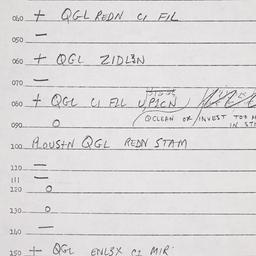 040 + QGL REDN CI FIL
050 —
060 + QGL ZIDL3N
070 —
080 + QGL CI FLL UPICN
090 O (QCLEAN OR INVEST TOO
IN
100 PLOUSTN QGL REDN STAM
110 =
111 —
120 O
130 O
140 —
150 + QGL ENL3X CI MIR